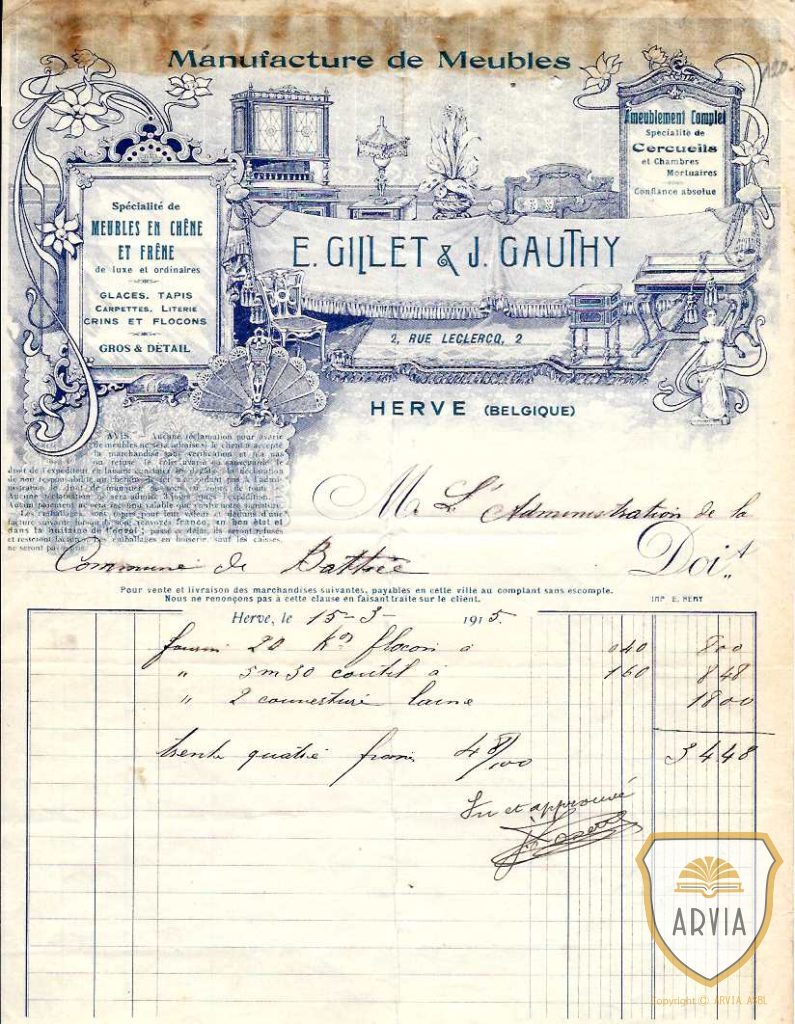 Manufacture de Meubles
120.-
Spécialité de
MEUBLES EN CHÊNE
ET FRÊNE
de luxe et ordinaires
GLACES, TAPIS
CARPETTES, LITERIE
CRINS ET FLOCONS
GROS & DÉTAIL
Ameublement Complet
Spécialité de
Cercueils
et Chambres
Mortuaires
Confiance absolue
E. GILLET & J. GAUTHY
2, RUE LECLERCQ, 2
HERVE (BELGIQUE)
AVIS. Aucune réclamation pour avarie
M. L'Administration de la
Commune de Battice Doit
Pour vente et livraison des marchandises suivantes, payables en cette ville au comptant sans escompte.
Nous ne renonçons pas à cette clause en faisant traite sur le client.
IMP E. REMY
Herve, le 15-3- 1915.
fourni 20 kos flocon à 040 800
" 5m30 coutil à 160 848
" 2 couverture laine 1800
trente quatre francs 48/100 3448
Vu et approuvé
ARVIA
Copyright © ARVIA ASBL